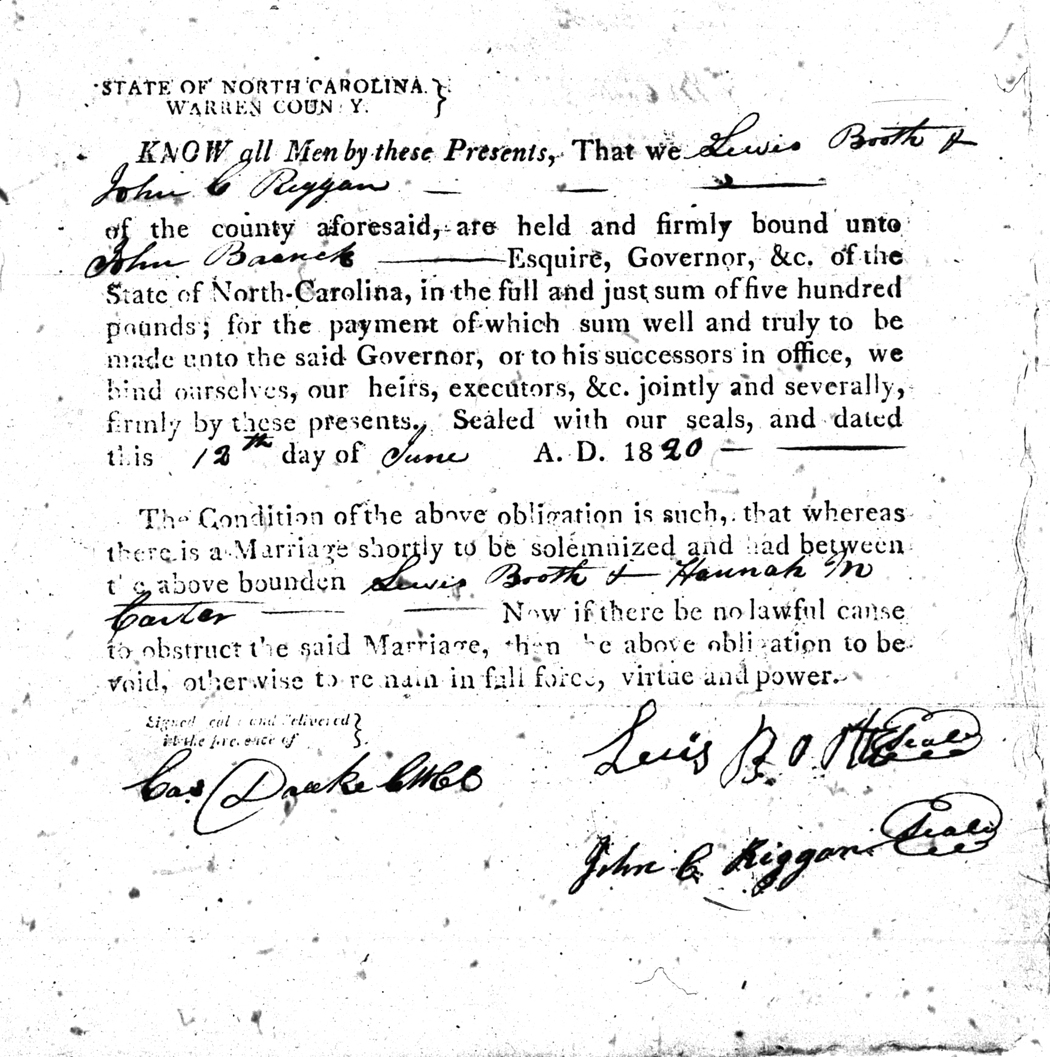 STATE OF NORTH CAROLINA. }
WARREN COUN Y.
KNOW all Men by these Presents, That we Lewis Booth &
John C Riggan
of the county aforesaid, are held and firmly bound unto
John Esquire, Governor, &c. of the
State of North-Carolina, in the full and just sum of five hundred
pounds; for the payment of which sum well and truly to be
made unto the said Governor, or to his successors in office, we
bind ourselves, our heirs, executors, &c. jointly and severally,
firmly by these presents. Sealed with our seals, and dated
this 12th day of June A. D. 1820
The Condition of the above obligation is such, that whereas
there is a Marriage shortly to be solemnized and had between
the above bounden Lewis Booth & Hannah M
Carter Now if there be no lawful cause
to obstruct the said Marriage, then he above obligation to be
void, otherwise to remain in full force, virtue and power.
Signed, and Delivered }
in the presence of
Lewis Booth Seal
Cas Drake CWCC
John C. Riggan Seal